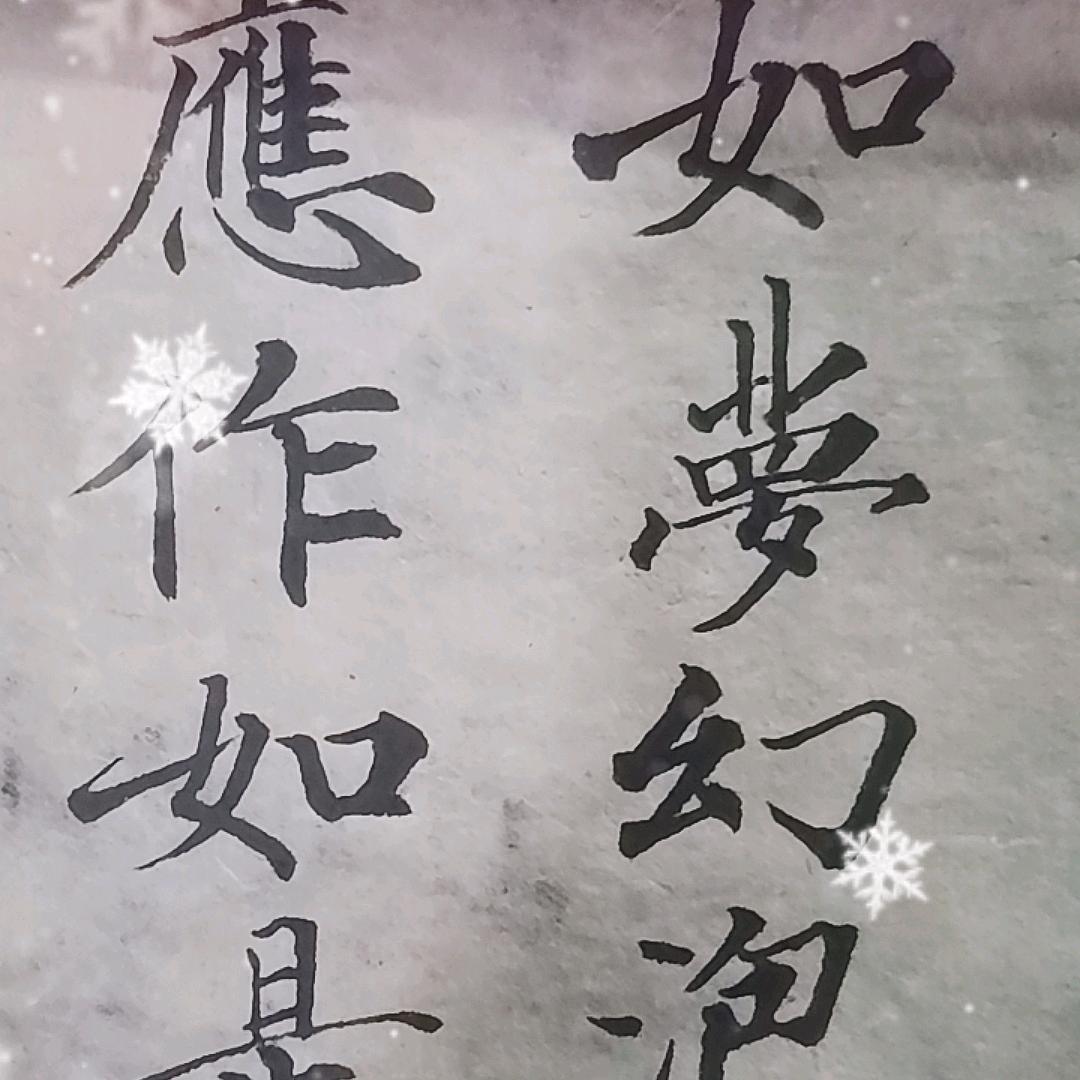 如夢幻泡
應作如是